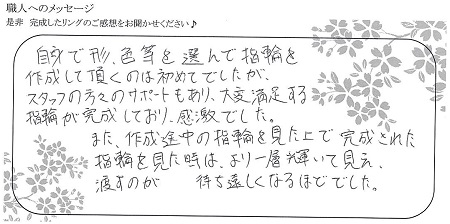 職人へのメッセージ
是非 完成したリングのご感想をお聞かせください♪
自身で形、色等を選んで指輪を
作成して頂くのは初めてでしたが、
スタッフの方々のサポートもあり、大変満足する
指輪が完成しており、感激でした。
また、作成途中の指輪を見た上で完成された
指輪を見た時は、より一層輝いて見え、
渡すのが 待ち遠しくなるほどでした。